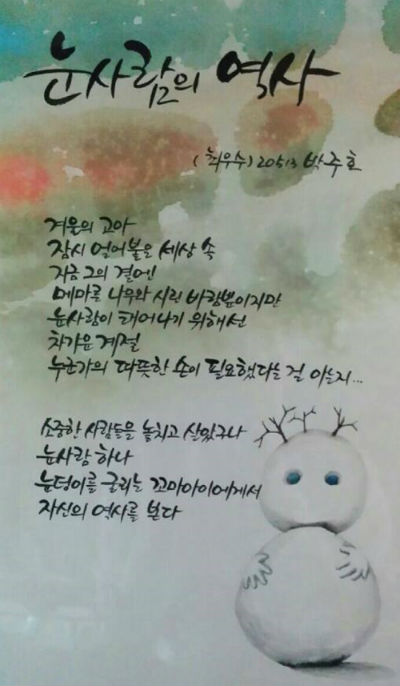 눈사람의 역사
(최우수) 20513 박주호
겨울의 고아
잠시 얼어붙은 세상 속
지금 그의 곁엔
메마른 나무와 시린 바람뿐이지만
눈사람이 태어나기 위해선
차가운 계절
누군가의 따뜻한 손이 필요했다는 걸 아는지...
소중한 사람들을 놓치고 살았구나
눈사람 하나
눈덩이를 굴리는 꼬마아이에게서
자신의 역사를 본다